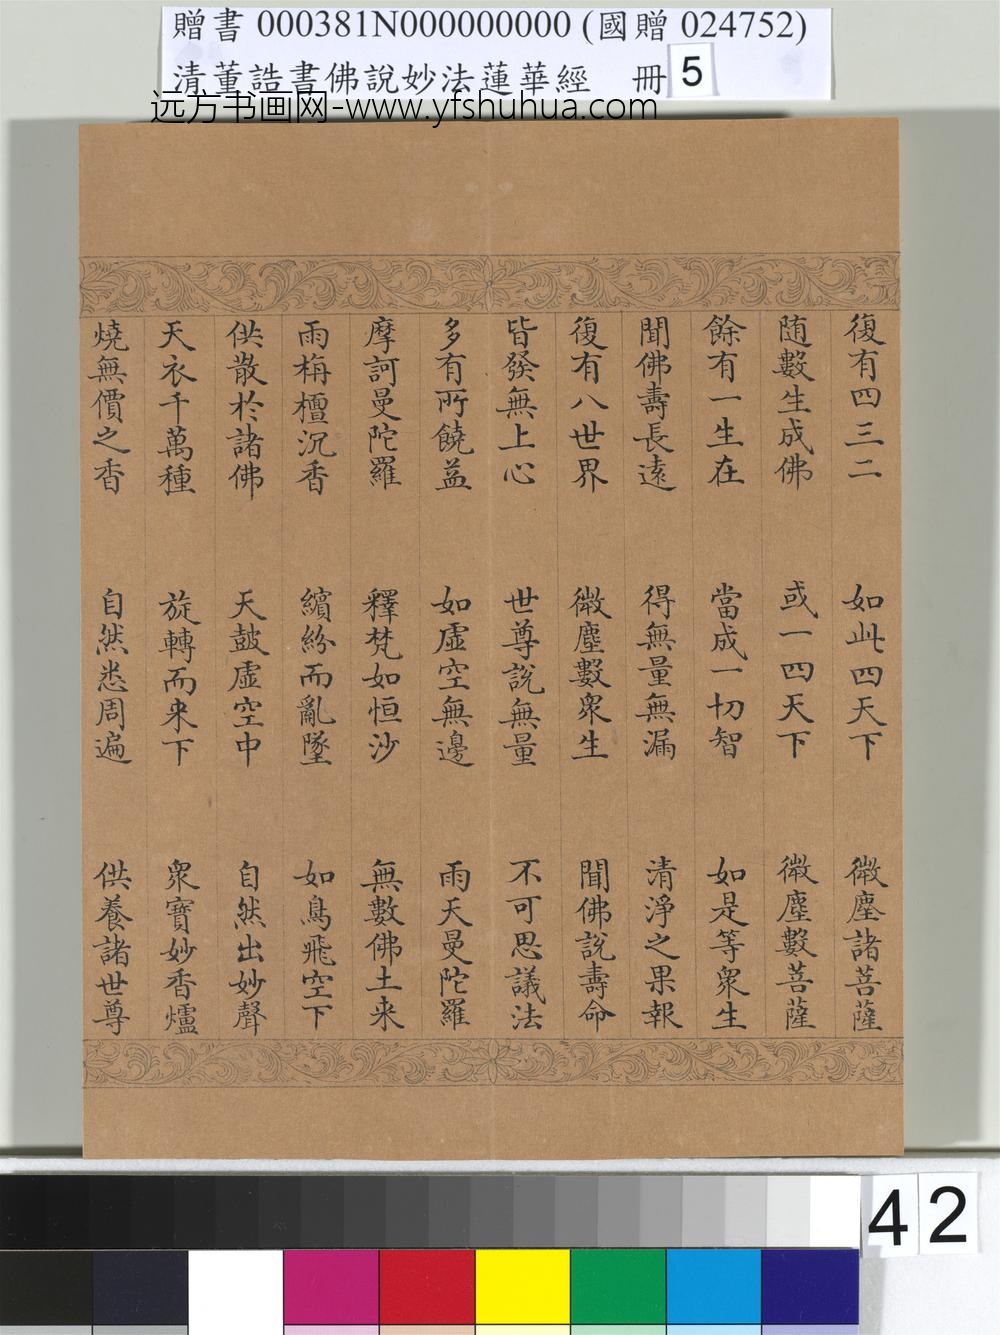 贈書 000381N000000000 (國贈 024752)
清董誥書佛說妙法蓮華經 冊 5
远方书画网-www.yfshuhua.com
復有四三二 如此四天下 微塵諸菩薩
随數生成佛 或一四天下 微塵數菩薩
餘有一生在 當成一切智 如是等衆生
聞佛壽長遠 得無量無漏 清淨之果報
復有八世界 微塵數衆生 聞佛說壽命
皆發無上心 世尊說無量 不可思議法
多有所饒益 如虛空無邊 雨天曼陀羅
摩訶曼陀羅 釋梵如恒沙 無數佛土来
雨栴檀沉香 繽紛而亂墜 如鳥飛空下
供散於諸佛 天鼓虛空中 自然出妙聲
天衣千萬種 旋轉而来下 衆寶妙香爐
燒無價之香 自然悉周遍 供養諸世尊
42